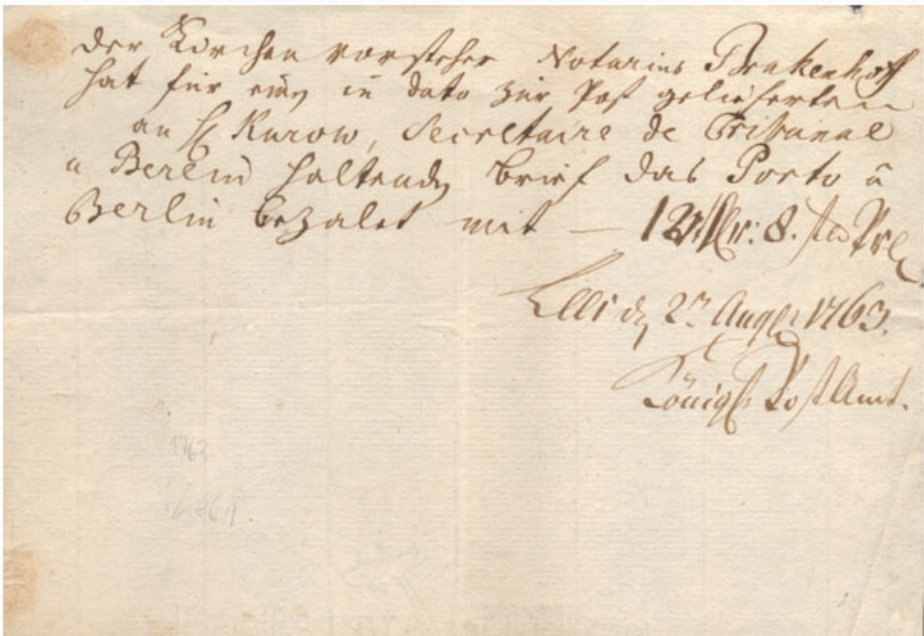 der Kirchen vorsteher Notarius Brakenhoff
hat für einen in dato zur Post gelieferten
an H Kurow, Secretaire de Tribunal
a Berlin haltenden brief das Porto a
Berlin bezalet mit — 8.
den 2ten Aug: 1763.
Königl: PostAmt.
1763